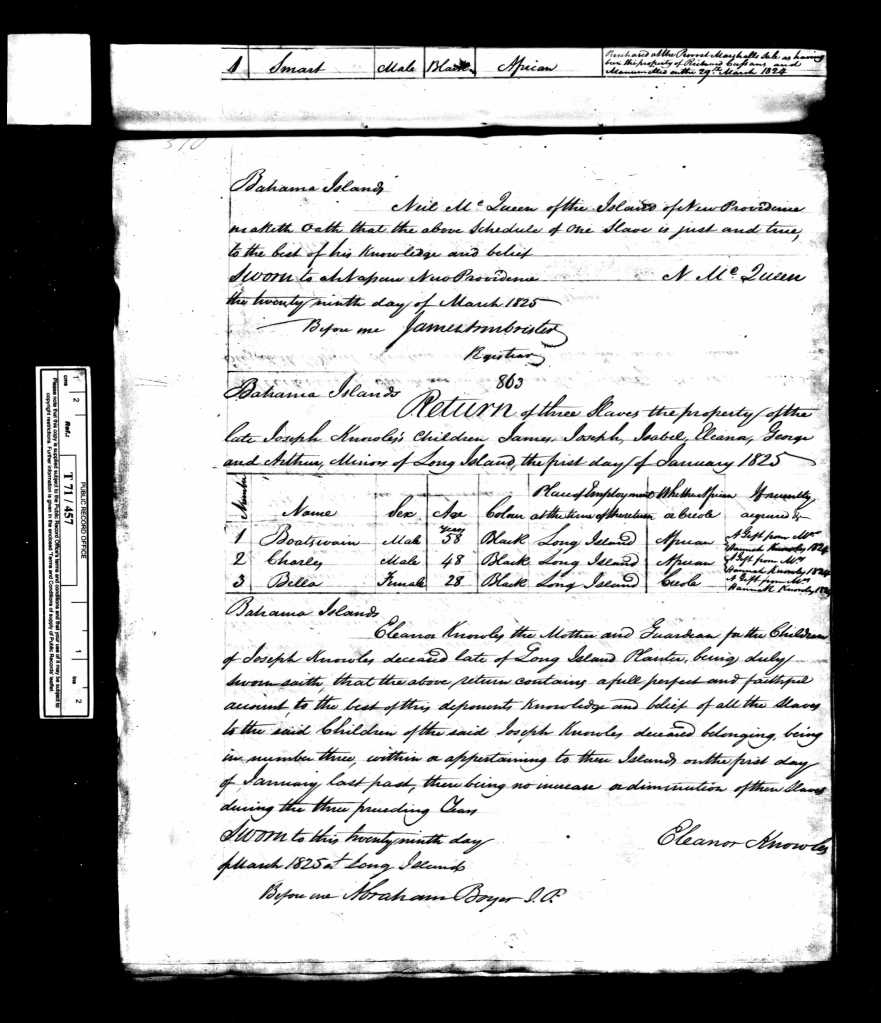 1 Smart Male Black African Purchased at the Provost Marshalls Sale as having
been the property of Richard and
Manumitted on the 29th March 1824
Bahama Islands
Neil Mc Queen of the Island of New Providence
maketh Oath that the above Schedule of One Slave is just and true,
to the best of his Knowledge and belief
Sworn to at Nassau New Providence N Mc Queen
the twenty ninth day of March 1825
Before me James Armbrister
Registrar
863
Bahama Islands
Return of three Slaves the property of the
late Joseph Knowles's Children James, Joseph, Isabel, Eleana, George
and Arthur, Minors of Long Island, the first day of January 1825
Number Name Sex Age Colour Place of Employment at the time of the return Whether African or Creole How recently acquired &
Years
1 Boatswain Male 58 Black Long Island African A Gift from Mrs Hannah Knowles 1824
2 Charley Male 48 Black Long Island African A Gift from Mrs Hannah Knowles 1824
3 Bella Female 28 Black Long Island Creole A Gift from Mrs Hannah Knowles 1824
Bahama Islands
Eleanor Knowles the Mother and Guardian for the Children
of Joseph Knowles deceased late of Long Island Planter, being duly
sworn saith, that the above return contains a full perfect and faithful
account, to the best of this deponents Knowledge and belief of all the Slaves
to the said Children of the said Joseph Knowles deceased belonging, being
in number three, within or appertaining to these Islands on the first day
of January last past, there being no increase or diminution of these Slaves
during the three preceding Years
Sworn to this twenty ninth day Eleanor Knowles
of March 1825 at Long Island
Before me Abraham Boyer J. P.
PUBLIC RECORD OFFICE
Ref.: T 71 / 457
cms 1 2
1 ins 2
Please note that this copy is supplied subject to the Public Record Office's terms and conditions and that your use of it may be subject to
copyright restrictions. Further information is given in the enclosed 'Terms and Conditions of supply of Public Records' leaflet